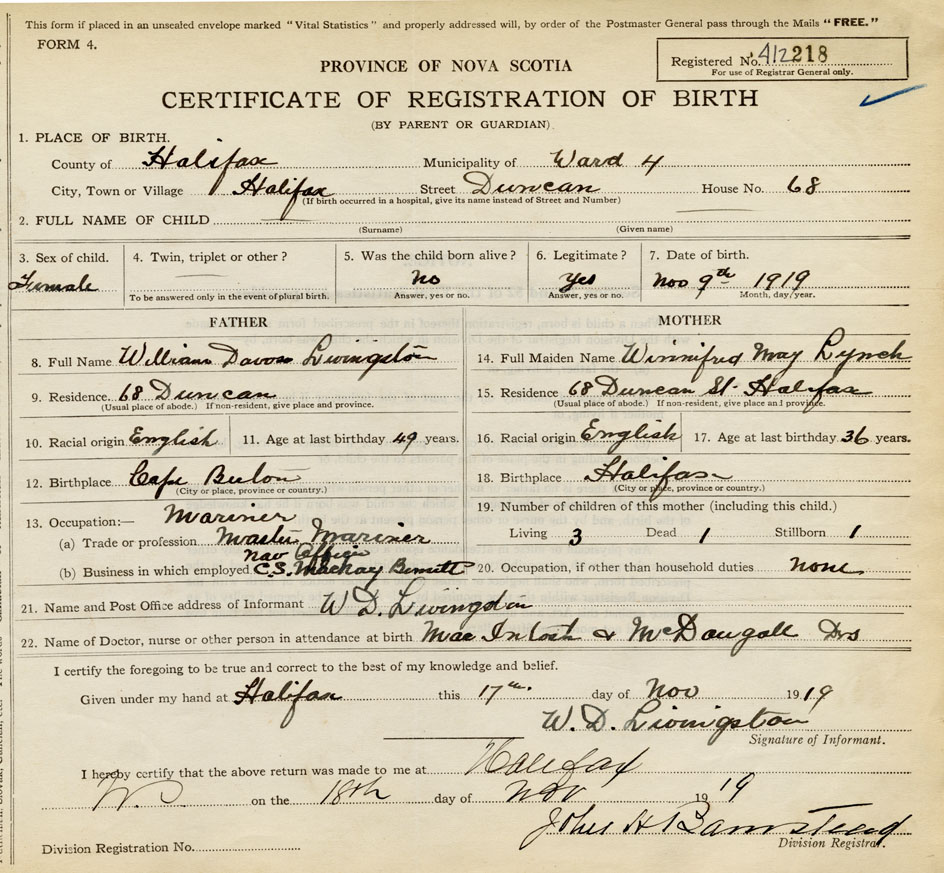 This form if placed in an unsealed envelope marked "Vital Statistics" and properly addressed will, by order of the Postmaster General pass through the Mails "FREE."
FORM 4.
Registered No. 412218
For use of Registrar General only.
PROVINCE OF NOVA SCOTIA
CERTIFICATE OF REGISTRATION OF BIRTH
(BY PARENT OR GUARDIAN)
1. PLACE OF BIRTH.
County of Halifax Municipality of Ward 4
City, Town or Village Halifax Street Duncan House No. 68
(If birth occurred in a hospital, give its name instead of Street and Number)
2. FULL NAME OF CHILD
(Surname) (Given name)
3. Sex of child. 4. Twin, triplet or other? 5. Was the child born alive? 6. Legitimate? 7. Date of birth.
Female No Yes Nov 9th 1919
To be answered only in the event of plural birth. Answer, yes or no. Answer, yes or no. Month, day/year.
FATHER
8. Full Name William Livingston
9. Residence. 68 Duncan
(Usual place of abode.) If non-resident, give place and province.
10. Racial origin English 11. Age at last birthday 49 years.
12. Birthplace Cape
(City or place, province or country.)
13. Occupation:— Mariner
(a) Trade or profession Master Mariner
Nav Officer
(b) Business in which employed C.S. Mackay Bennett
MOTHER
14. Full Maiden Name Winnifred May Lynch
15. Residence 68 Duncan St. Halifax
(Usual place of abode.) If non-resident, give place and province.
16. Racial origin English 17. Age at last birthday 36 years.
18. Birthplace Halifax
(City or place, province or country.)
19. Number of children of this mother (including this child.)
Living 3 Dead 1 Stillborn 1
20. Occupation, if other than household duties none
21. Name and Post Office address of Informant W. D. Livingston
22. Name of Doctor, nurse or other person in attendance at birth Mac Intosh & McDougall Drs
I certify the foregoing to be true and correct to the best of my knowledge and belief.
Given under my hand at Halifax this 17th. day of Nov 1919
W. D. Livingston
Signature of Informant.
I hereby certify that the above return was made to me at Halifax
on the 18th day of Nov 1919
John H Barnstead
Division Registrar.
Division Registration No.